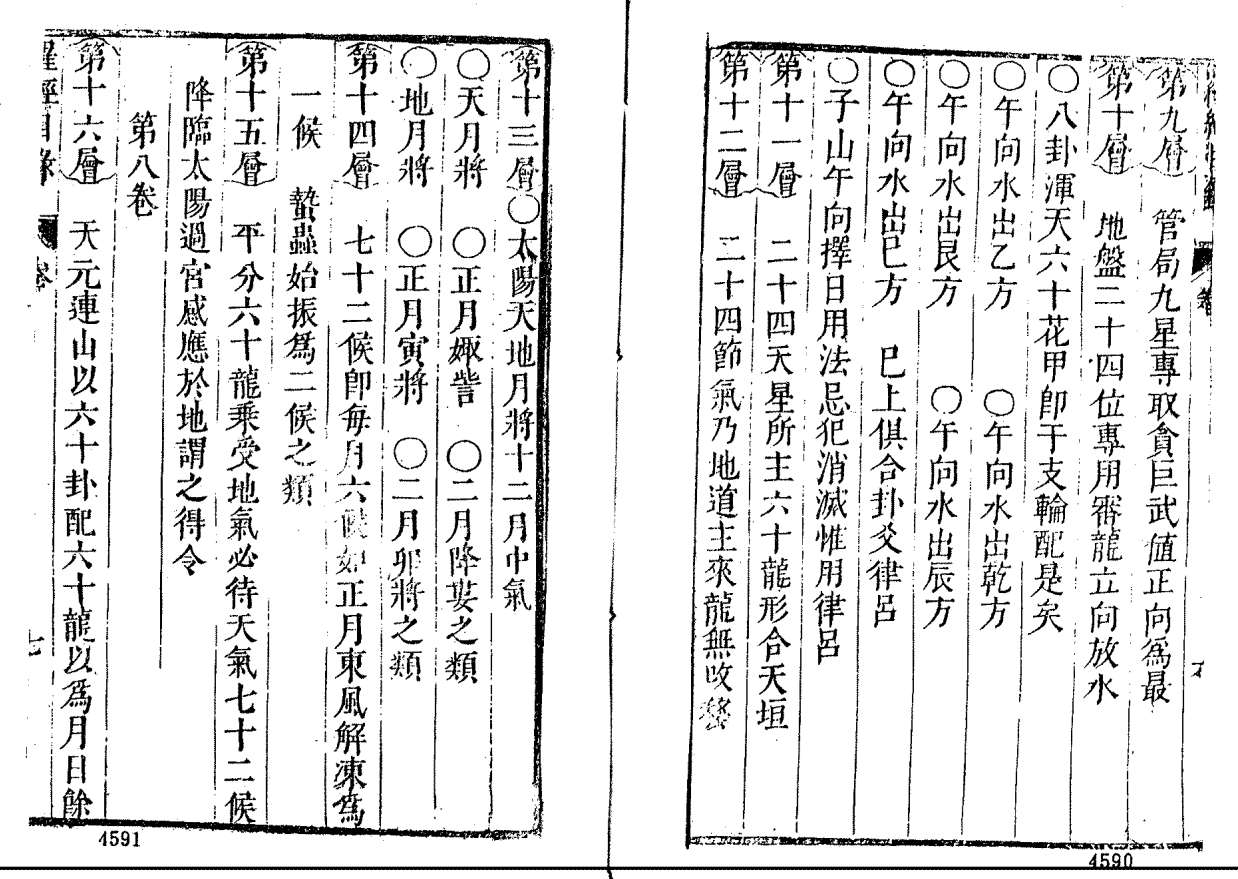 第九層　管局九星專取貪巨武值正向爲最
第十層　地盤二十四位專用審龍立向放水
〇八卦渾天六十花甲卽干支輪配是矣
〇午向水出乙方　〇午向水出乾方
〇午向水出艮方　〇午向水出辰方
〇午向水出巳方　巳上俱合卦爻律呂
〇子山午向擇日用法忌犯消滅惟用律呂
第十一層　二十四天星所主六十龍形合天垣
第十二層　二十四節氣乃地道主來龍無改
4590
第十三層〇太陽天地月將十二月中氣
〇天月將　〇正月娵訾　〇二月降婁之類
〇地月將　〇正月寅將　〇二月卯將之類
第十四層　七十二候卽每月六候如正月東風解凍爲
一候　蟄蟲始振爲二候之類
第十五層　平分六十龍乘受地氣必待天氣七十二候
降臨太陽過宮感應於地謂之得令
第八卷
第十六層　天元連山以六十卦配六十龍以爲月日餘
羅經目錄　卷　七
4591